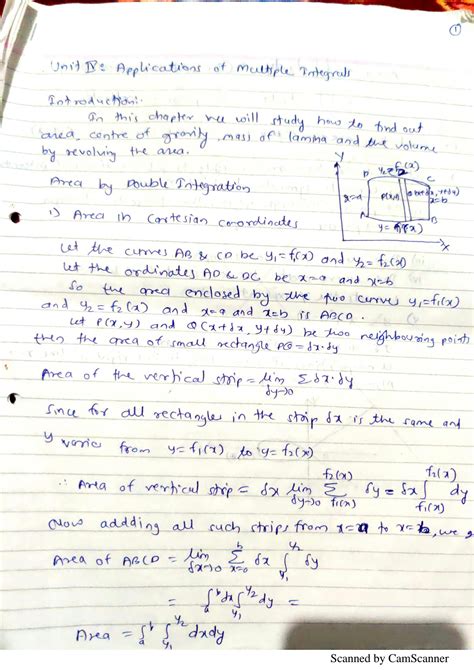 1
Unit IV: Applications of Multiple Integrals
Introduction:
In this chapter we will study how to find out
area, centre of gravity, mass of lamina and the volume
by revolving the area.
Area by Double Integration
1) Area in Cartesian coordinates
y
D y2=f2(x) C
x=a P(x,y) x=b
A B
x
Let the curves AB & CD be y1=f1(x) and y2=f2(x)
Let the ordinates AD & DC be x=a and x=b
So the area enclosed by the two curve y1=f1(x)
and y2=f2(x) and x=a and x=b is ABCD.
Let P(x,y) and Q(x+δx, y+δy) be two neighbouring points
then the area of small rectangle PQ=δx·δy
Area of the vertical strip = lim δy→0 Σ δx·δy
Since for all rectangles in the strip δx is the same and
y varies from y=f1(x) to y=f2(x)
∴ Area of vertical strip = δx lim δy→0 Σ f1(x) f2(x) δy = δx ∫ f1(x) f2(x) dy
Now addding all such strips from x=a to x=b, we
Area of ABCD = lim δx→0 Σ x=a b δx ∫ y1 y2 δy
= ∫ a b dx ∫ y1 y2 dy =
Area = ∫ a b ∫ y1 y2 dxdy
Scanned by CamScanner